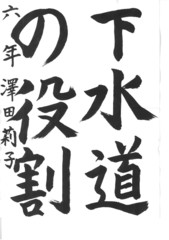 下水道
の役割
六年 澤田莉子